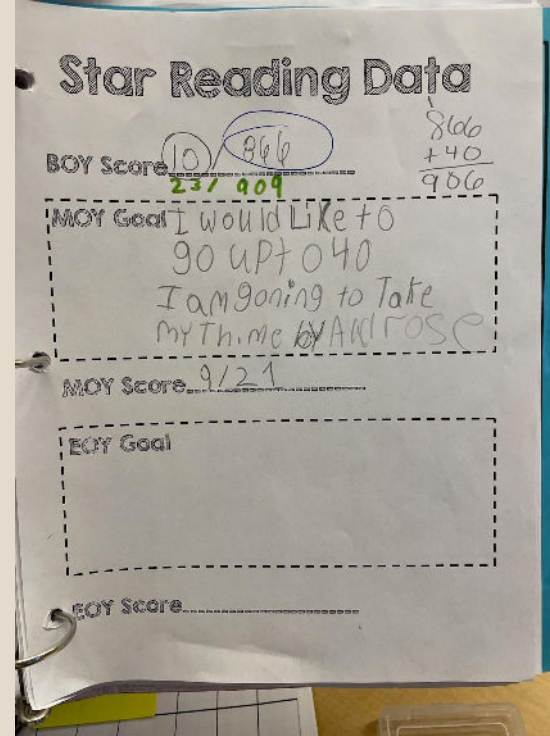 Star Reading Data
866
+40
906
BOY Score 10/866
23/ 909
MOY Goal I would Like to
go up to 40
I am goning to Take
my Thime by
MOY Score 9/21
EOY Goal
EOY Score